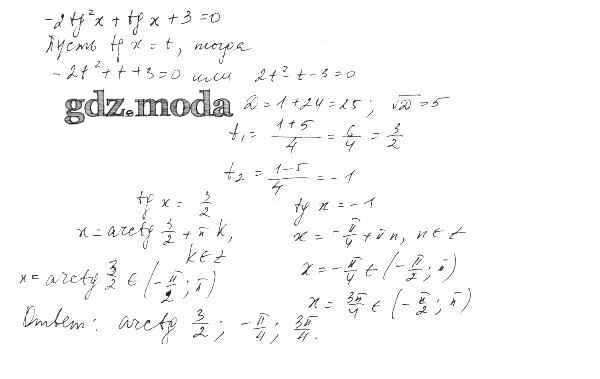 -2tg²x + tg x + 3 = 0
Пусть tg x = t, тогда
-2t² + t + 3 = 0 или 2t² - t - 3 = 0
gdz.moda
D = 1 + 24 = 25; √D = 5
t₁ = (1+5)/4 = 6/4 = 3/2
t₂ = (1-5)/4 = -1
tg x = 3/2
x = arctg 3/2 + πk,
k ∈ z
x = arctg 3/2 ∈ (-π/2; π)
tg x = -1
x = -π/4 + πn, n ∈ z
x = -π/4 ∈ (-π/2; π)
x = 3π/4 ∈ (-π/2; π)
Ответ: arctg 3/2; -π/4; 3π/4.